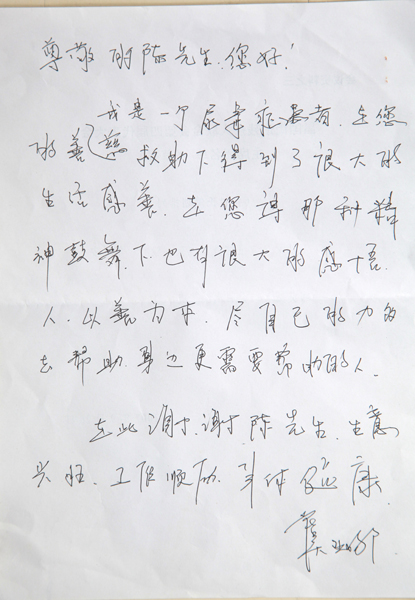 尊敬的陈先生.您好!
我是一个尿毒症患者.在您
的善慈救助下得到了很大的
生活感善.在您谆那种精
神鼓舞.下.也有很大的感悟.
人.以善为本.尽自己的力的
去帮助.身边更需要帮助的人.
在此谢谢.谢陈先生.生意
兴旺.工作顺利.身体健康.